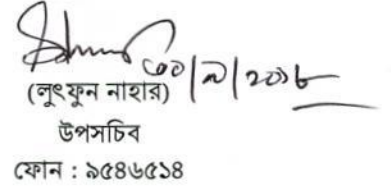 ৩০/৯/২০১৮
(লুৎফুন নাহার)
উপসচিব
ফোন : ৯৫৪৬৫১৪